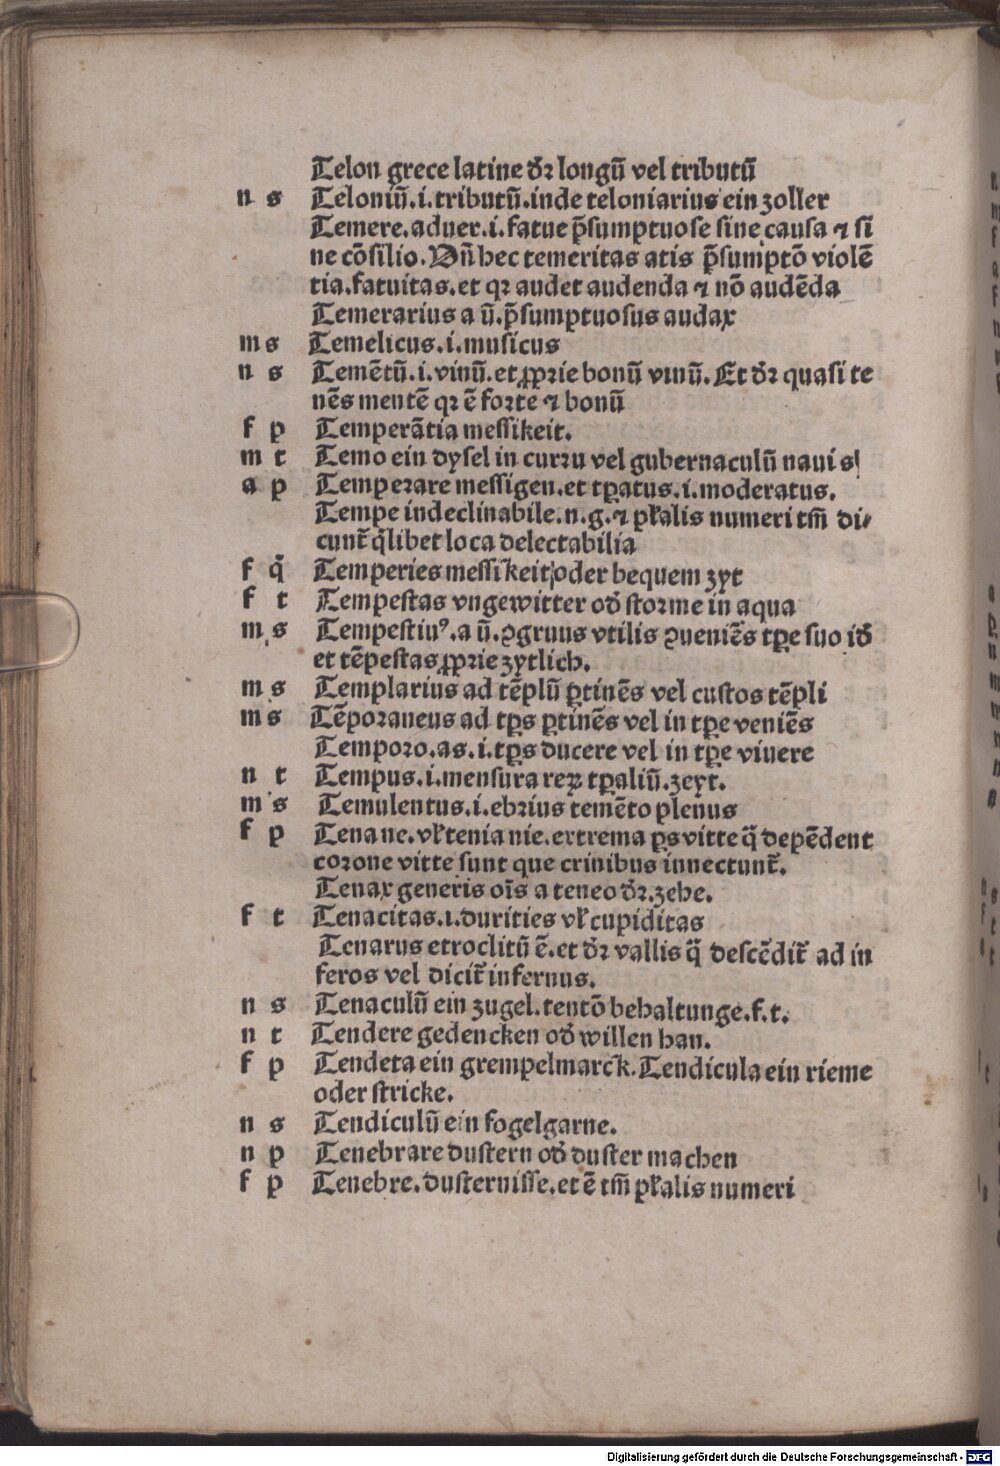 Telon grece latine dr̄ longū vel tributū
n s Teloniū.i.tributū.inde teloniarius ein zoller
Temere.aduer.i.fatue p̄sumptuose sine causa ⁊ si
ne cōsilio.Vn̄ hec temeritas atis p̄sumptō violē
tia.fatuitas.et qꝛ audet audenda ⁊ nō audēda
Temerarius a ū.p̄sumptuosus audax
m s Temelicus.i.musicus
n s Temētū.i.vinū.et ꝓprie bonū vinū.Et dr̄ quasi te
nēs mentē qꝛ ē forte ⁊ bonū
f p Temperātia messikeit.
m t Temo ein dysel in curru vel gubernaculū nauis
a p Temperare messigen.et tꝑatus.i.moderatus.
Tempe indeclinabile.n.g.⁊ pl̄alis numeri tm̄ di⸗
cunt᷑ q̄libet loca delectabilia
f q̄ Temperies messikeit oder bequem zyt
f t Tempestas vngewitter od̄ storme in aqua
m s Tempestiuꝰ.a ū.ꝯgruus vtilis ꝯueniēs tꝑe suo id̄
et tēpestas ꝓprie zytlich.
m s Templarius ad tēplū ꝑtinēs vel custos tēpli
m s Tēporaneus ad tꝑs ꝑtinēs vel in tꝑe veniēs
Temporo.as.i.tꝑs ducere vel in tꝑe viuere
n t Tempus.i.mensura reꝝ tꝑaliū.zeyt.
m s Temulentus.i.ebrius temēto plenus
f p Tena ne.vl̄ tenia nie.extrema ꝑs vitte q̄ depēdent
corone vitte sunt que crinibus innectunt᷑.
Tenax generis oīs a teneo dr̄.zehe.
f t Tenacitas.i.durities vl̄ cupiditas
Tenarus etroclitū ē.et dr̄ vallis q̄ descēdit᷑ ad in
feros vel dicit᷑ infernus.
n s Tenaculū ein zugel.tentō behaltunge.f.t.
n t Tendere gedencken od̄ willen han.
f p Tendeta ein grempelmarck.Tendicula ein rieme
oder stricke.
n s Tendiculū ein fogelgarne.
n p Tenebrare dustern od̄ duster machen
f p Tenebre.dusternisse.et ē tm̄ pl̄alis numeri
Digitalisierung gefördert durch die Deutsche Forschungsgemeinschaft - DFG